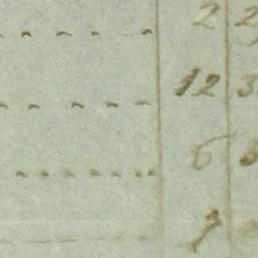 2 2
12 3
6
1